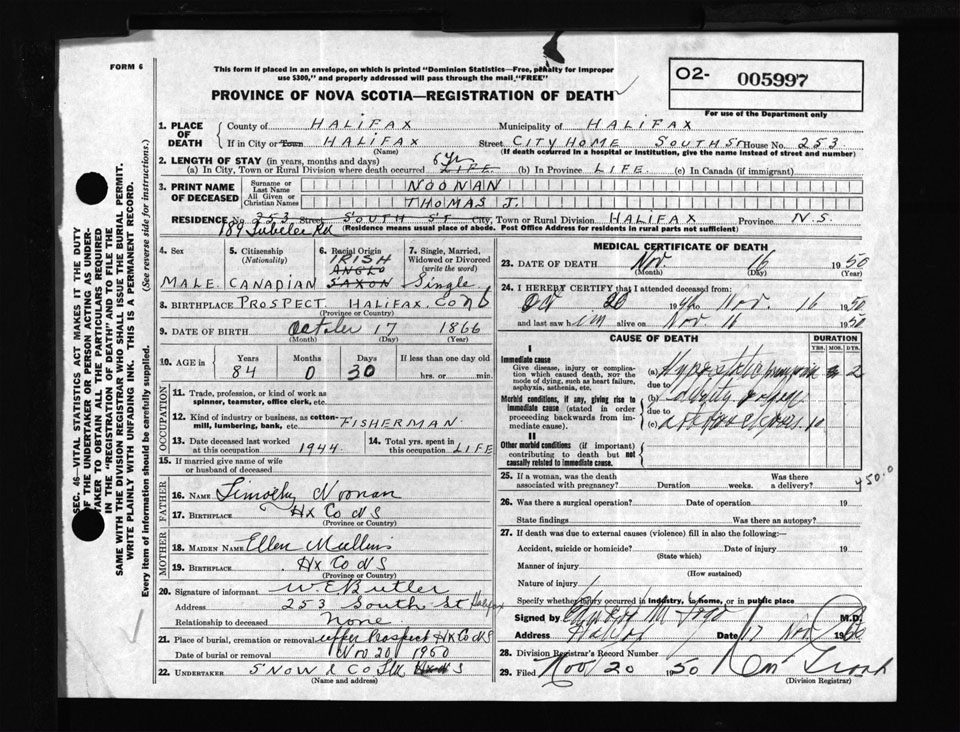 FORM 6
This form if placed in an envelope, on which is printed "Dominion Statistics—Free, penalty for improper
use $300," and properly addressed will pass through the mail "FREE"
PROVINCE OF NOVA SCOTIA—REGISTRATION OF DEATH
O2- 005997
For use of the Department only
1. PLACE OF DEATH
County of HALIFAX Municipality of HALIFAX
If in City or Town HALIFAX Street CITY HOME SOUTH St House No. 253
(Name) (If death occurred in a hospital or institution, give the name instead of street and number)
2. LENGTH OF STAY (in years, months and days)
(a) In City, Town or Rural Division where death occurred 6 yr LIFE (b) In Province LIFE. (c) In Canada (if immigrant)
3. PRINT NAME OF DECEASED
Surname or Last Name NOONAN
All Given or Christian Names THOMAS J.
RESIDENCE No. 253 Street SOUTH ST City, Town or Rural Division HALIFAX Province N.S.
189 Jubilee Rd (Residence means usual place of abode. Post Office Address for residents in rural parts not sufficient)
4. Sex
MALE
5. Citizenship (Nationality)
CANADIAN
6. Racial Origin
IRISH
ANGLO SAXON
7. Single, Married, Widowed or Divorced (write the word)
Single
8. BIRTHPLACE PROSPECT HALIFAX. CO
(Province or Country)
9. DATE OF BIRTH October 17 1866
(Month) (Day) (Year)
10. AGE in
Years Months Days If less than one day old
84 0 30 hrs. or min.
OCCUPATION
11. Trade, profession, or kind of work as
spinner, teamster, office clerk, etc.
12. Kind of industry or business, as cotton-
mill, lumbering, bank, etc. FISHERMAN
13. Date deceased last worked at this occupation 1944
14. Total yrs. spent in this occupation LIFE
15. If married give name of wife
or husband of deceased
FATHER
16. NAME Timothy Noonan
17. BIRTHPLACE Hx Co NS
(Province or Country)
MOTHER
18. MAIDEN NAME Ellen Mullins
19. BIRTHPLACE Hx Co NS
(Province or Country)
20. Signature of informant W. E. Butler
Address 253 South St Halifax
Relationship to deceased None
21. Place of burial, cremation or removal upper Prospect Hx Co NS
Date of burial or removal Nov 20 1950
22. UNDERTAKER SNOW & CO Ltd Hx NS
(Name and address)
MEDICAL CERTIFICATE OF DEATH
23. DATE OF DEATH Nov 16 1950
(Month) (Day) (Year)
24. I HEREBY CERTIFY that I attended deceased from:
Oct 20 1946 to Nov. 16 1950
and last saw him alive on Nov. 16 1950
CAUSE OF DEATH DURATION
YRS. MOS. DYS.
I
Immediate cause
Give disease, injury or complica-
tion which caused death, NOT the
mode of dying, such as heart failure,
asphyxia, asthenia, etc.
(a) Hypostatic pneumonia 2
due to
Morbid conditions, if any, giving rise to
immediate cause (stated in order
proceeding backwards from im-
mediate cause).
(b)
due to
(c) 10
II
Other morbid conditions (if important)
contributing to death but not
causally related to immediate cause.
25. If a woman, was the death
associated with pregnancy? Duration weeks. Was there a delivery?
450.0
26. Was there a surgical operation? Date of operation 19
State findings Was there an autopsy?
27. If death was due to external causes (violence) fill in also the following:—
Accident, suicide or homicide? Date of injury 19
(State which)
Manner of injury
(How sustained)
Nature of injury
Specify whether injury occurred in industry, in home, or in public place
Signed by M.D.
Address Halifax Date 17 Nov
28. Division Registrar's Record Number
29. Filed Nov 20 1950
(Division Registrar)
SEC. 46—VITAL STATISTICS ACT MAKES IT THE DUTY
OF THE UNDERTAKER OR PERSON ACTING AS UNDER-
TAKER TO OBTAIN ALL THE PARTICULARS REQUIRED
IN THE "REGISTRATION OF DEATH" AND TO FILE THE
SAME WITH THE DIVISION REGISTRAR WHO SHALL ISSUE THE BURIAL PERMIT.
WRITE PLAINLY WITH UNFADING INK. THIS IS A PERMANENT RECORD.
Every item of information should be carefully supplied. (See reverse side for instructions.)